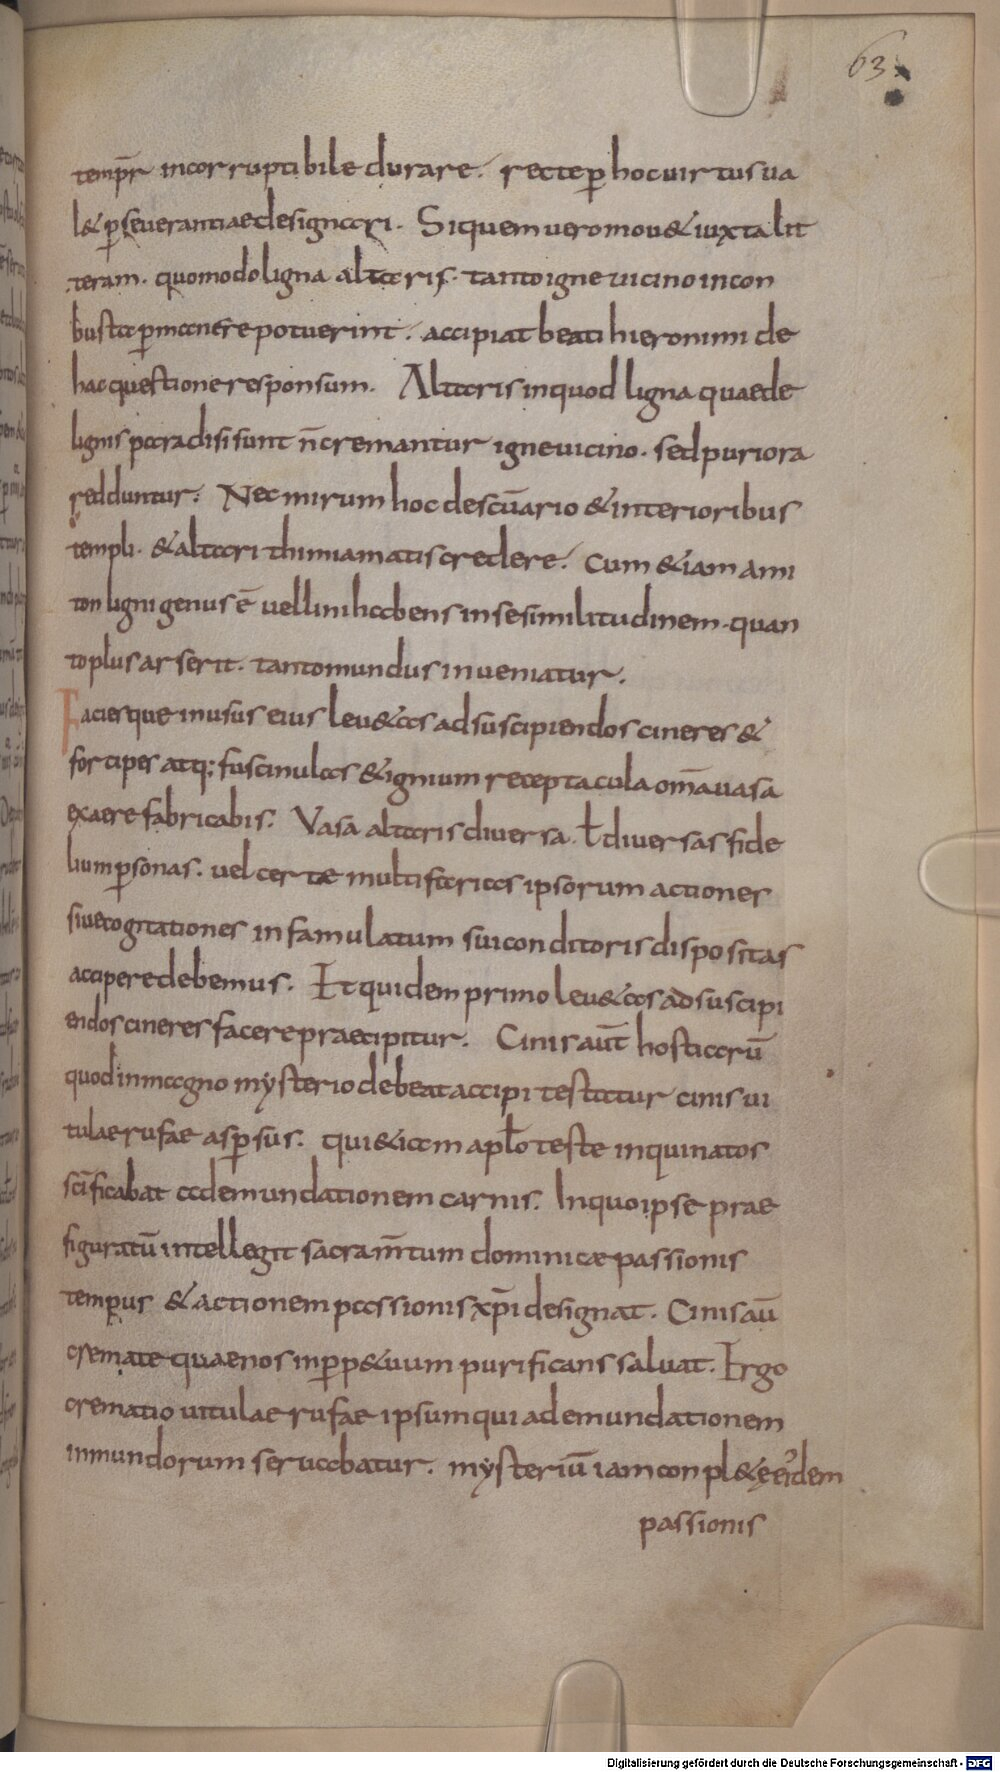 63
temp̄r incorruptibile durare. recte ꝑ hoc uirtus ua
l& ꝑseverantiae designari. Si quem vero mou& iuxta lit
teram. quomodo ligna altaris. tanto igne uicino incon
busta ꝑmanere potuerint. accipiat beati hieronimi de
hac questione responsum. Altaris inquod ligna quae de
lignis paradisi sunt n̄ cremantur igne uicino. sed puriora
redduntur. Nec mirum hoc de scūario & interioribus
templi. & altari thimiamatis credere. Cum & iam ami
ton ligni genus ē vel lini habens in se similitudinem. quan
to plus arserit. tanto mundus inveniatur.
Faciesque in usus eius leu&as ad suscipiendos cineres &
forcipes atq; fuscinulas & ignium receptacula om̄a vasa
ex aere fabricabis. Vasa altaris diversa. ł diversas fide
lium ꝑsonas. vel certae multifarias ipsorum actiones
sive cogitationes in famulatum sui conditoris dispositas
accipere debemus. Et quidem primo leu&as ad suscipi
endos cineres facere praecipitur. Cinis aūt hostiarū
quod in magno mysterio debeat accipi testatur cinis ui
tulae rufae aspersus. qui & iam apło teste inquinatos
scīficabat ad emundationem carnis. In quo ipse prae
figuratū intellegit sacram̄tum dominicae passionis
tempus & actionem passionis xp̄i designat. Cinis aū
cremate quae nos inꝑp&uum purificans salvat. Ergo
crematio vitulae rufae ipsum qui ad emundationem
inmundorum servabatur. mysteriū iam conpl&ę eidem
passionis
Digitalisierung gefördert durch die Deutsche Forschungsgemeinschaft - DFG